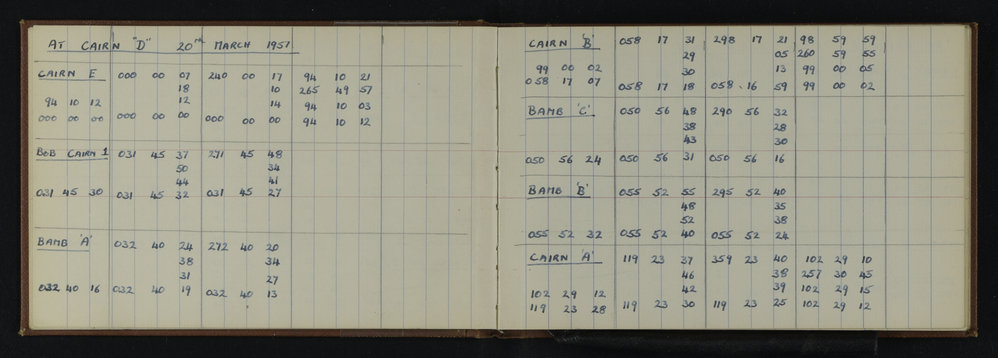 AT CAIRN "D" 20TH MARCH 1951
CAIRN E 000 00 07 240 00 17 94 10 21
18 10 265 49 57
94 10 12 12 14 94 10 03
000 00 00 000 00 00 000 00 00 94 10 12
BOB CAIRN 1 031 45 37 271 45 48
50 34
44 41
031 45 30 031 45 32 031 45 27
BAMB 'A' 032 40 24 272 40 20
38 34
31 27
032 40 16 032 40 19 032 40 13
CAIRN 'B' 058 17 31 298 17 21 98 59 59
29 05 260 59 55
99 00 02 30 13 99 00 05
058 17 07 058 17 18 058 16 59 99 00 02
BAMB 'C' 050 56 48 290 56 32
38 28
43 30
050 56 24 050 56 31 050 56 16
BAMB 'B' 055 52 55 295 52 40
48 35
52 38
055 52 32 055 52 40 055 52 24
CAIRN 'A' 119 23 37 359 23 40 102 29 10
46 38 257 30 45
102 29 12 42 39 102 29 15
119 23 28 119 23 30 119 23 25 102 29 12